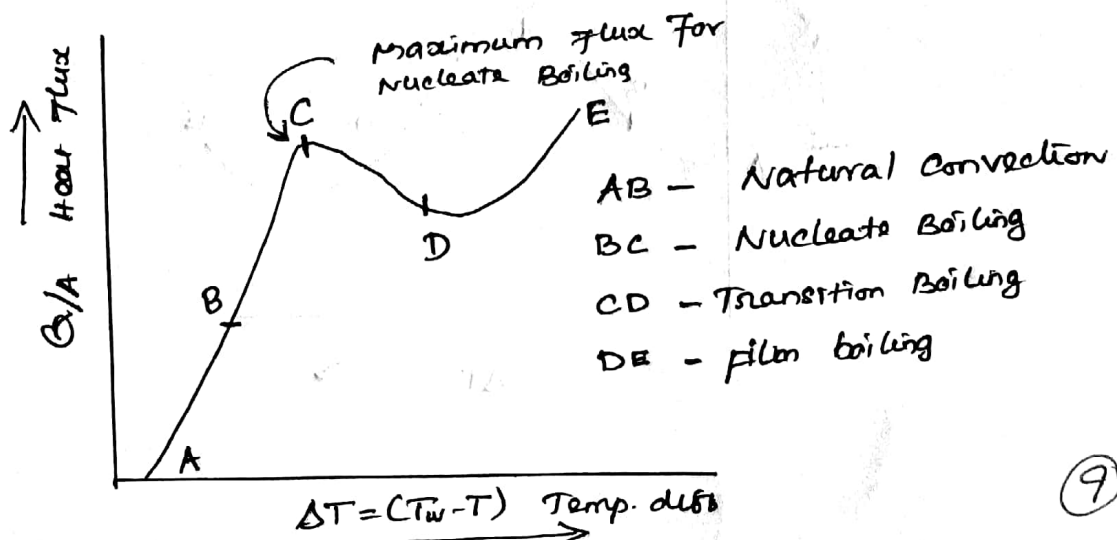 Maximum Flux For
Nucleate Boiling
C
E
B
D
A
Q/A Heat Flux
AB - Natural Convection
BC - Nucleate Boiling
CD - Transition Boiling
DE - film boiling
ΔT = (Tw - T) Temp. diff
9